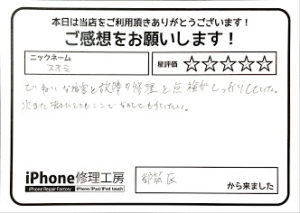 本日は当店をご利用頂きありがとうございます!
ご感想をお願いします!
ニックネーム
スオミ
星評価 ☆☆☆☆☆
ていねいな接客と故障の修理と点検がしっかりしていた。
次また壊れたらここで
iPhone修理工房
iPhone Repair Factory iPhone/iPad/iPod touch
都筑区
から来ました